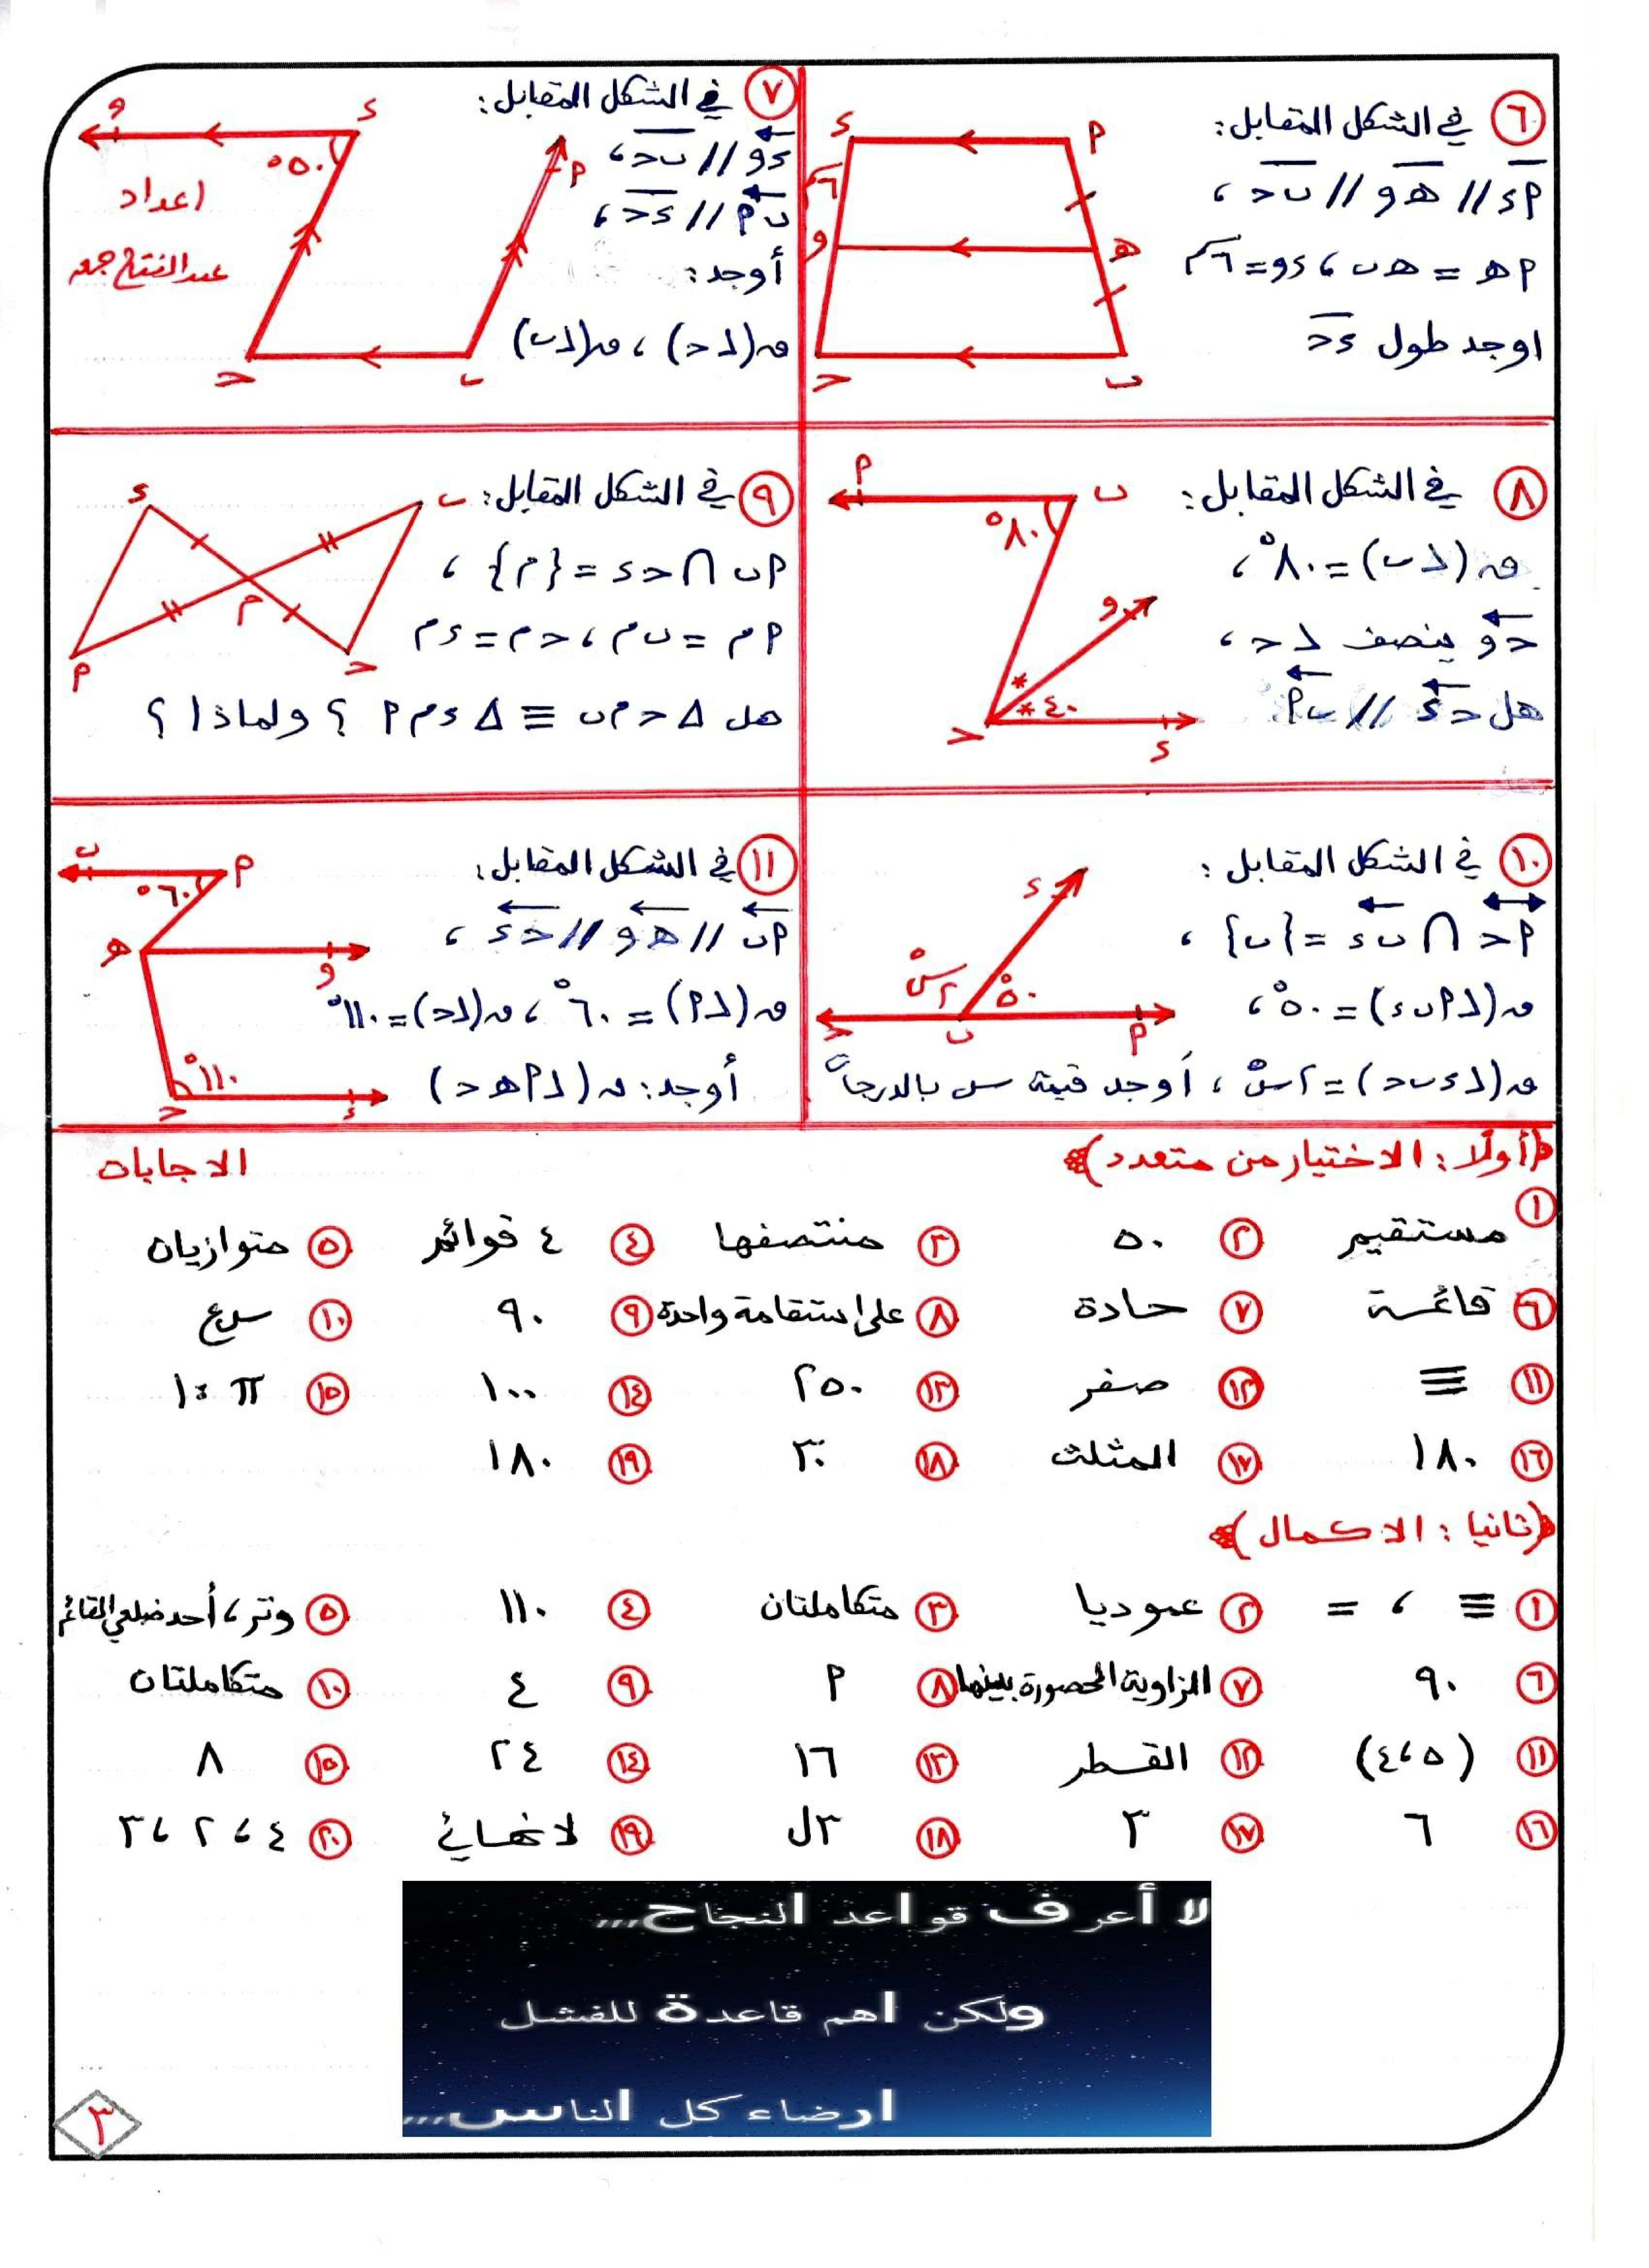 ٦ في الشكل المقابل:
أء // هـ و // ب ج ،
أهـ = هـ ب ، ء و = ٦سم
اوجد طول ء ج
أ
ء
هـ
و
٦سم
ب
ج
٧ في الشكل المقابل:
ء و // ب ج ،
ب أ // ء ج ،
أوجد:
ق(∠ج) ، ق(∠ب)
و
ء
°٥٠
أ
ج
ب
اعداد
عبدالفتاح جمعه
٨ في الشكل المقابل:
ق(∠ب) = ٨٠° ،
ج و ينصف ∠ج ،
هل ج ء // ب أ
أ
ب
°٨٠
و
*
* ٤٠
ج
ء
٩ في الشكل المقابل:
أب ∩ ج ء = {م} ،
أم = ب م ، ج م = ء م
هل Δ ج م ب ≡ Δ ء م أ ؟ ولماذا ؟
ء
ب
م
أ
ج
١٠ في الشكل المقابل:
أج ∩ ب ء = {ب} ،
ق(∠أ ب ء) = ٥٠° ،
ق(∠ء ب ج) = ٢س° ، أوجد قيمة س بالدرجات
ء
٢س°
°٥٠
ج
ب
أ
١١ في الشكل المقابل:
أب // هـ و // ج ء ،
ق(∠أ) = ٦٠° ، ق(∠ج) = ١١٠°
أوجد: ق(∠أ هـ ج)
ب
أ
°٦٠
هـ
و
°١١٠
ج
ء
﴿أولًا: الاختيار من متعدد﴾ الاجابات
١ مستقيم ٢ ٥٠ ٣ منتصفها ٤ ٤ قوائم ٥ متوازيان
٦ قائمة ٧ حادة ٨ على استقامة واحدة ٩ ٩٠ ١٠ س ع
١١ ≡ ١٢ صفر ١٣ ٢٥٠ ١٤ ١٠٠ ١٥ π : ١
١٦ ١٨٠ ١٧ المثلث ١٨ ٣٠ ١٩ ١٨٠
﴿ثانيا: الاكمال﴾
١ ≡ ، = ٢ عموديا ٣ متكاملتان ٤ ١١٠ ٥ وتر ، أحد ضلعي القائمة
٦ ٩٠ ٧ الزاوية المحصورة بينهما ٨ أ ٩ ٤ ١٠ متكاملتان
١١ (٥ ، ٤) ١٢ القطر ١٣ ١٦ ١٤ ٢٤ ١٥ ٨
١٦ ٦ ١٧ ٣ ١٨ ٣ل ١٩ لا نهائي ٢٠ ٤ ، ٢ ، ٣
لا أعرف قواعد النجاح,,,
ولكن اهم قاعدة للفشل
ارضاء كل الناس,,,
٣